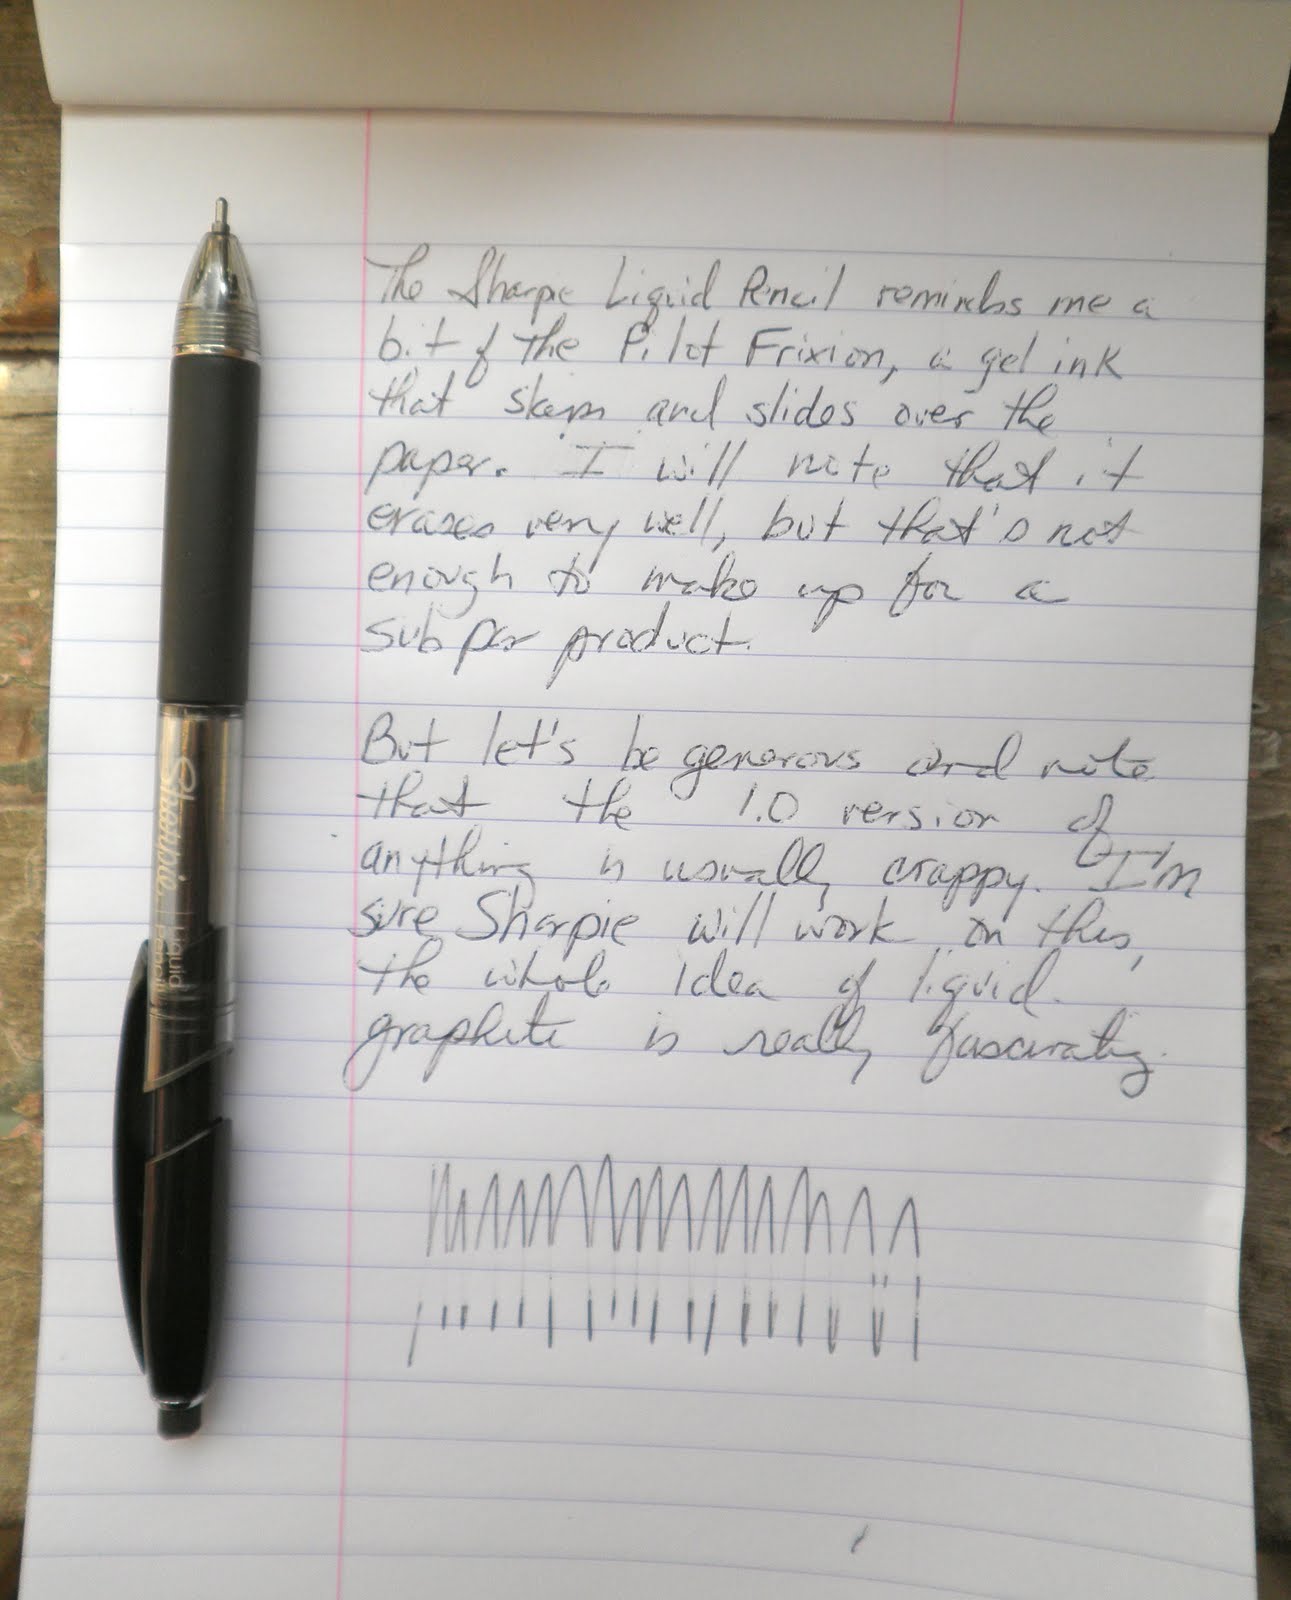 The Sharpie Liquid Pencil reminds me a
bit of the Pilot Frixion, a gel ink
that skims and slides over the
paper. I will note that it
erases very well, but that's not
enough to make up for a
subpar product.
But let's be generous and note
that the 1.0 version of
anything is usually crappy. I'm
sure Sharpie will work on this,
the whole idea of liquid
graphite is really fascinating.
Sharpie Liquid Pencil